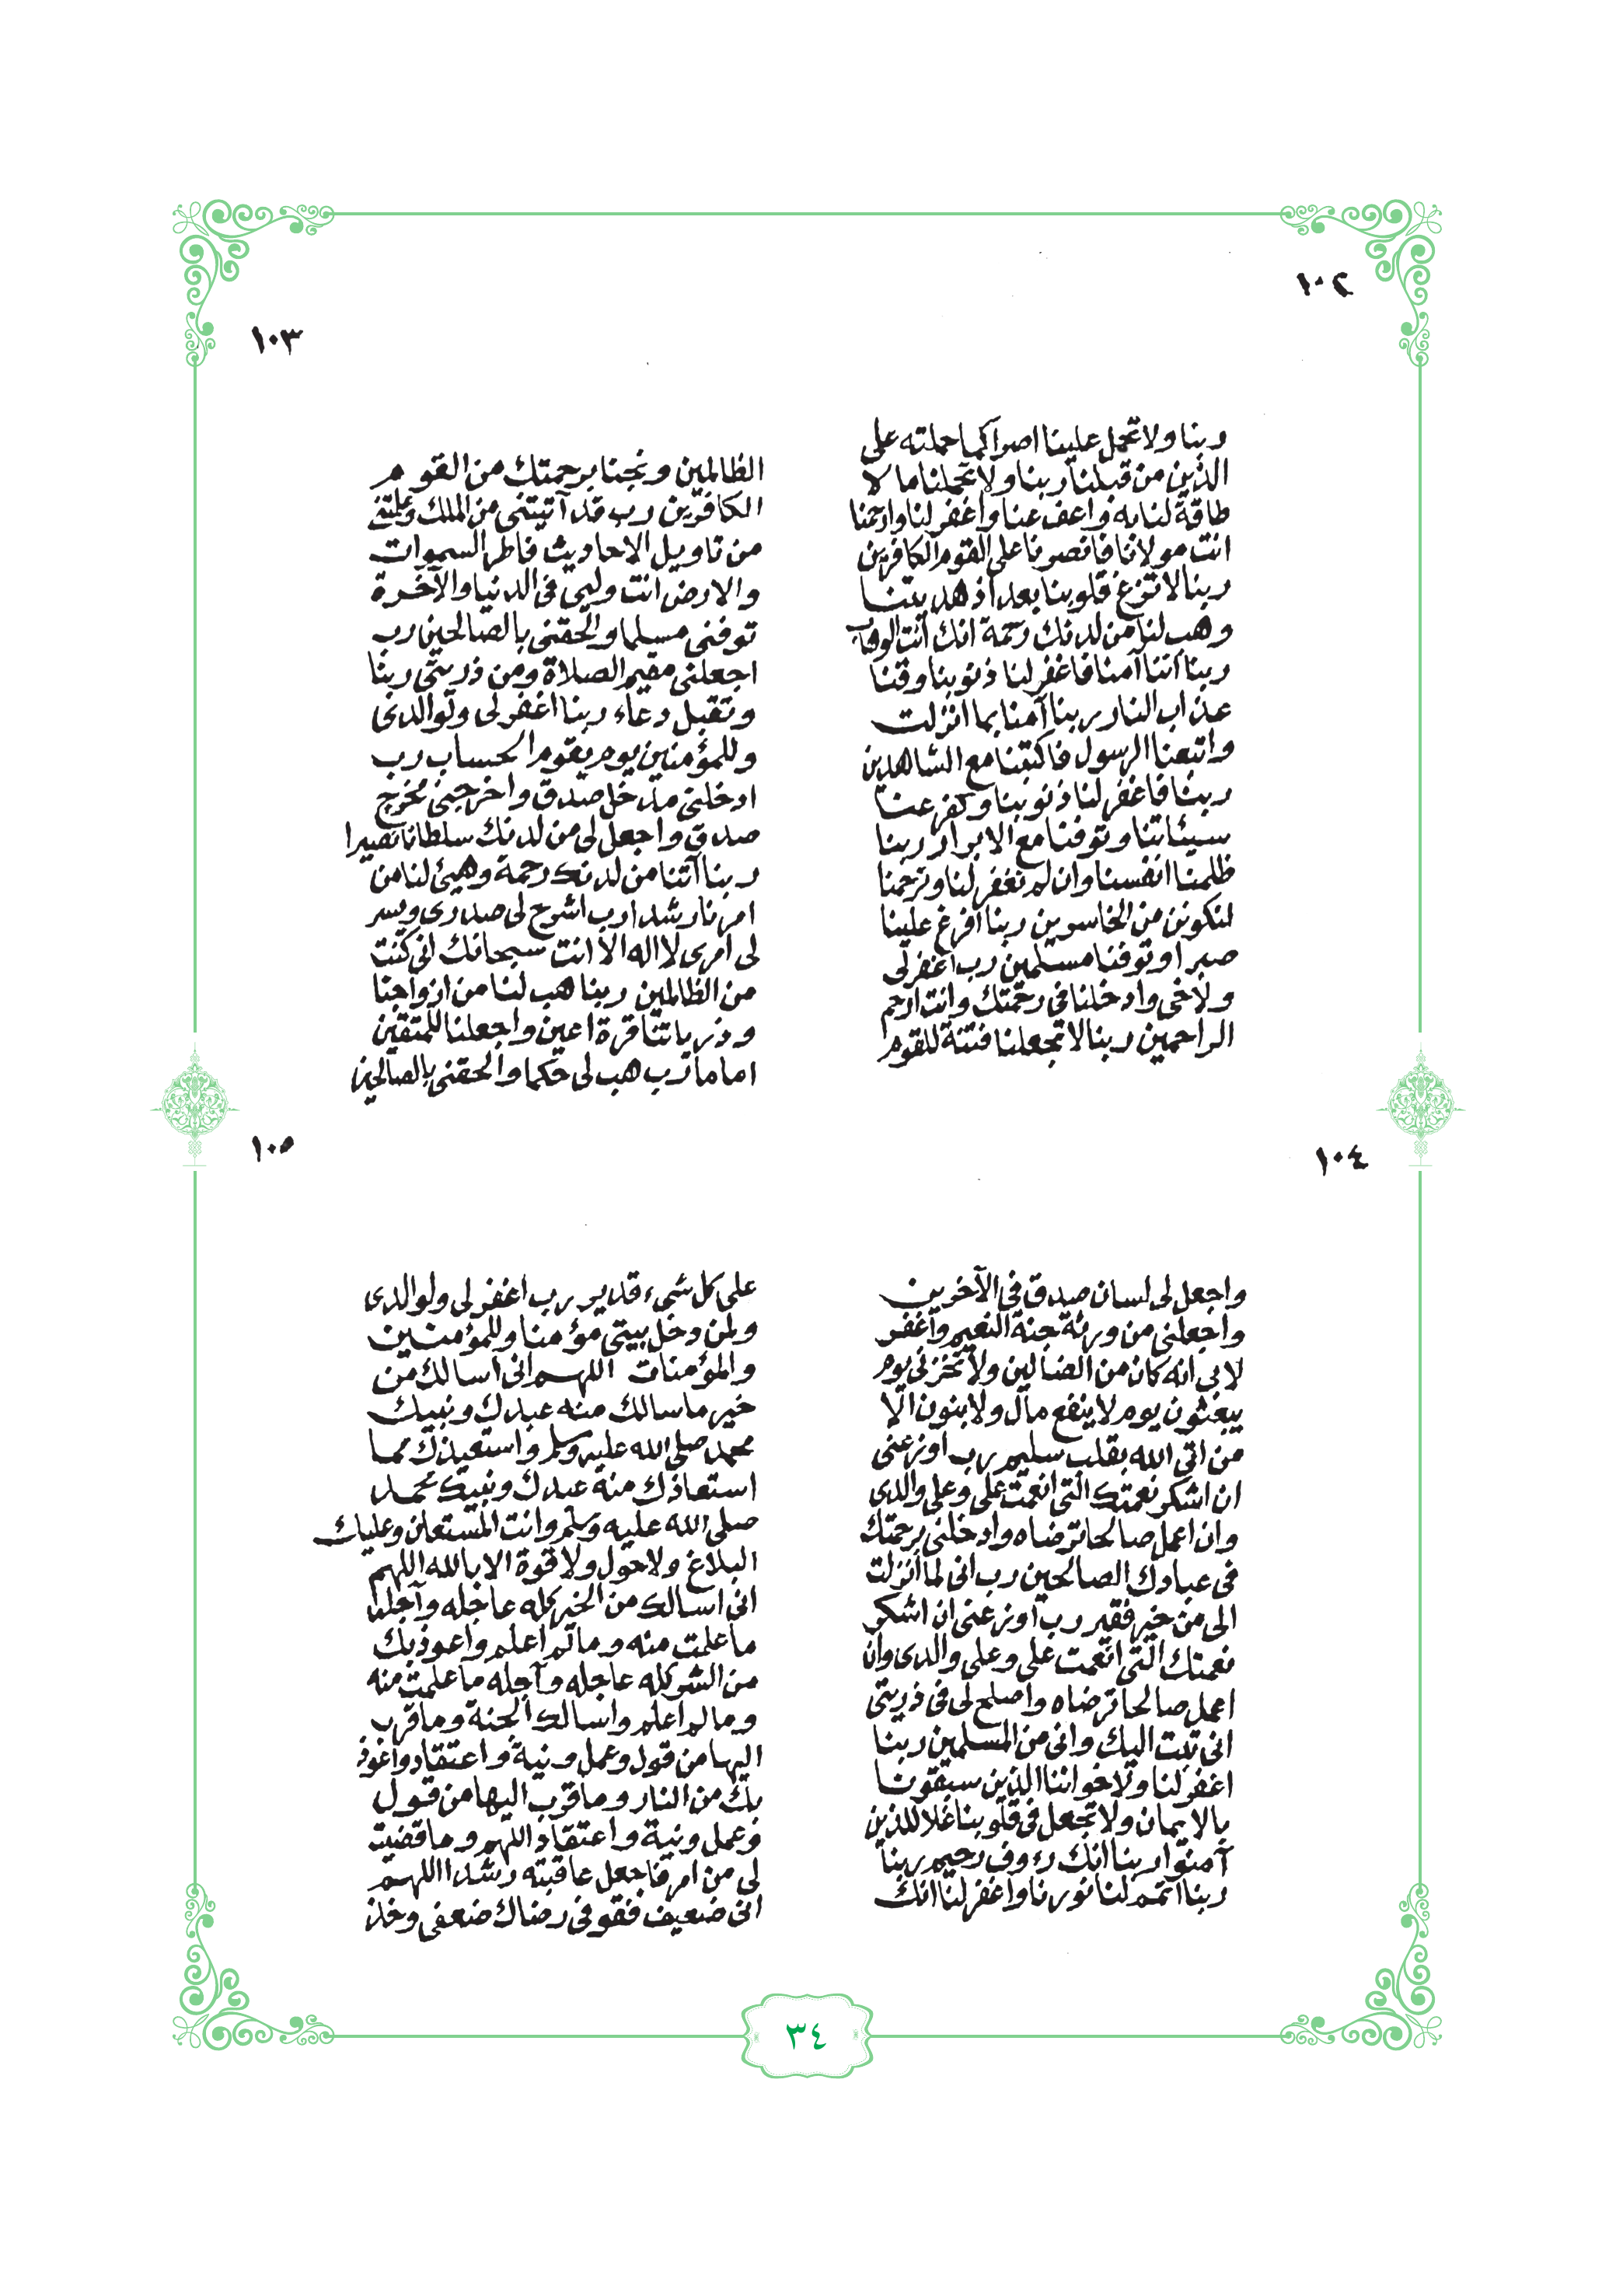 ١٠٢
ربنا ولا تحمل علينا اصرا كما حملته على
الذين من قبلنا ربنا ولا تحملنا ما لا
طاقة لنا به واعف عنا واغفر لنا وارحمنا
انت مولانا فانصرنا على القوم الكافرين
ربنا لا تزغ قلوبنا بعد اذ هديتنا
وهب لنا من لدنك رحمة انك انت الوهاب
ربنا اننا آمنا فاغفر لنا ذنوبنا وقنا
عذاب النار ربنا آمنا بما انزلت
واتبعنا الرسول فاكتبنا مع الشاهدين
ربنا فاغفر لنا ذنوبنا وكفر عنا
سيئاتنا وتوفنا مع الابرار ربنا
ظلمنا انفسنا وان لم تغفر لنا وترحمنا
لنكونن من الخاسرين ربنا افرغ علينا
صبرا وتوفنا مسلمين رب اغفر لى
ولأخى وادخلنا فى رحمتك وانت ارحم
الراحمين ربنا لا تجعلنا فتنة للقوم
١٠٣
الظالمين ونجنا برحمتك من القوم
الكافرين رب قد آتيتنى من الملك وعلمتنى
من تاويل الاحاديث فاطر السموات
والارض انت وليى فى الدنيا والآخرة
توفنى مسلما والحقنى بالصالحين رب
اجعلنى مقيم الصلاة ومن ذريتى ربنا
وتقبل دعاء ربنا اغفر لى ولوالدى
وللمؤمنين يوم يقوم الحساب رب
ادخلنى مدخل صدق واخرجنى مخرج
صدق واجعل لى من لدنك سلطانا نصيرا
ربنا آتنا من لدنك رحمة وهيئ لنا من
امرنا رشدا رب اشرح لى صدرى ويسر
لى امرى لا اله الا انت سبحانك انى كنت
من الظالمين ربنا هب لنا من ازواجنا
وذرياتنا قرة اعين واجعلنا للمتقين
اماما رب هب لى حكما والحقنى بالصالحين
١٠٤
واجعل لى لسان صدق فى الآخرين
واجعلنى من ورثة جنة النعيم واغفر
لابى انه كان من الضالين ولا تخزنى يوم
يبعثون يوم لا ينفع مال ولا بنون الا
من اتى الله بقلب سليم رب اوزعنى
ان اشكر نعمتك التى انعمت على وعلى والدى
وان اعمل صالحا ترضاه وادخلنى برحمتك
فى عبادك الصالحين رب انى لما انزلت
الى من خير فقير رب اوزعنى ان اشكر
نعمتك التى انعمت على وعلى والدى وان
اعمل صالحا ترضاه واصلح لى فى ذريتى
انى تبت اليك وانى من المسلمين ربنا
اغفر لنا ولاخواننا الذين سبقونا
بالايمان ولا تجعل فى قلوبنا غلا للذين
آمنوا ربنا انك رءوف رحيم ربنا
ربنا اتمم لنا نورنا واغفر لنا انك
١٠٥
على كل شىء قدير رب اغفر لى ولوالدى
ولمن دخل بيتى مؤمنا وللمؤمنين
والمؤمنات اللهم انى اسالك من
خير ما سالك منه عبدك ونبيك
محمد صلى الله عليه وسلم واستعيذك مما
استعاذك منه عبدك ونبيك محمد
صلى الله عليه وسلم وانت المستعان وعليك
البلاغ ولا حول ولا قوة الا بالله اللهم
انى اسالك من الخير كله عاجله وآجله
ما علمت منه وما لم اعلم واعوذ بك
من الشر كله عاجله وآجله ما علمت منه
وما لم اعلم واسالك الجنة وما قرب
اليها من قول وعمل ونية واعتقاد واعوذ
بك من النار وما قرب اليها من قول
وعمل ونية واعتقاد اللهم وما قضيت
لى من امر فاجعل عاقبته رشدا اللهم
انى ضعيف فقو فى رضاك ضعفى وخذ
٣٤